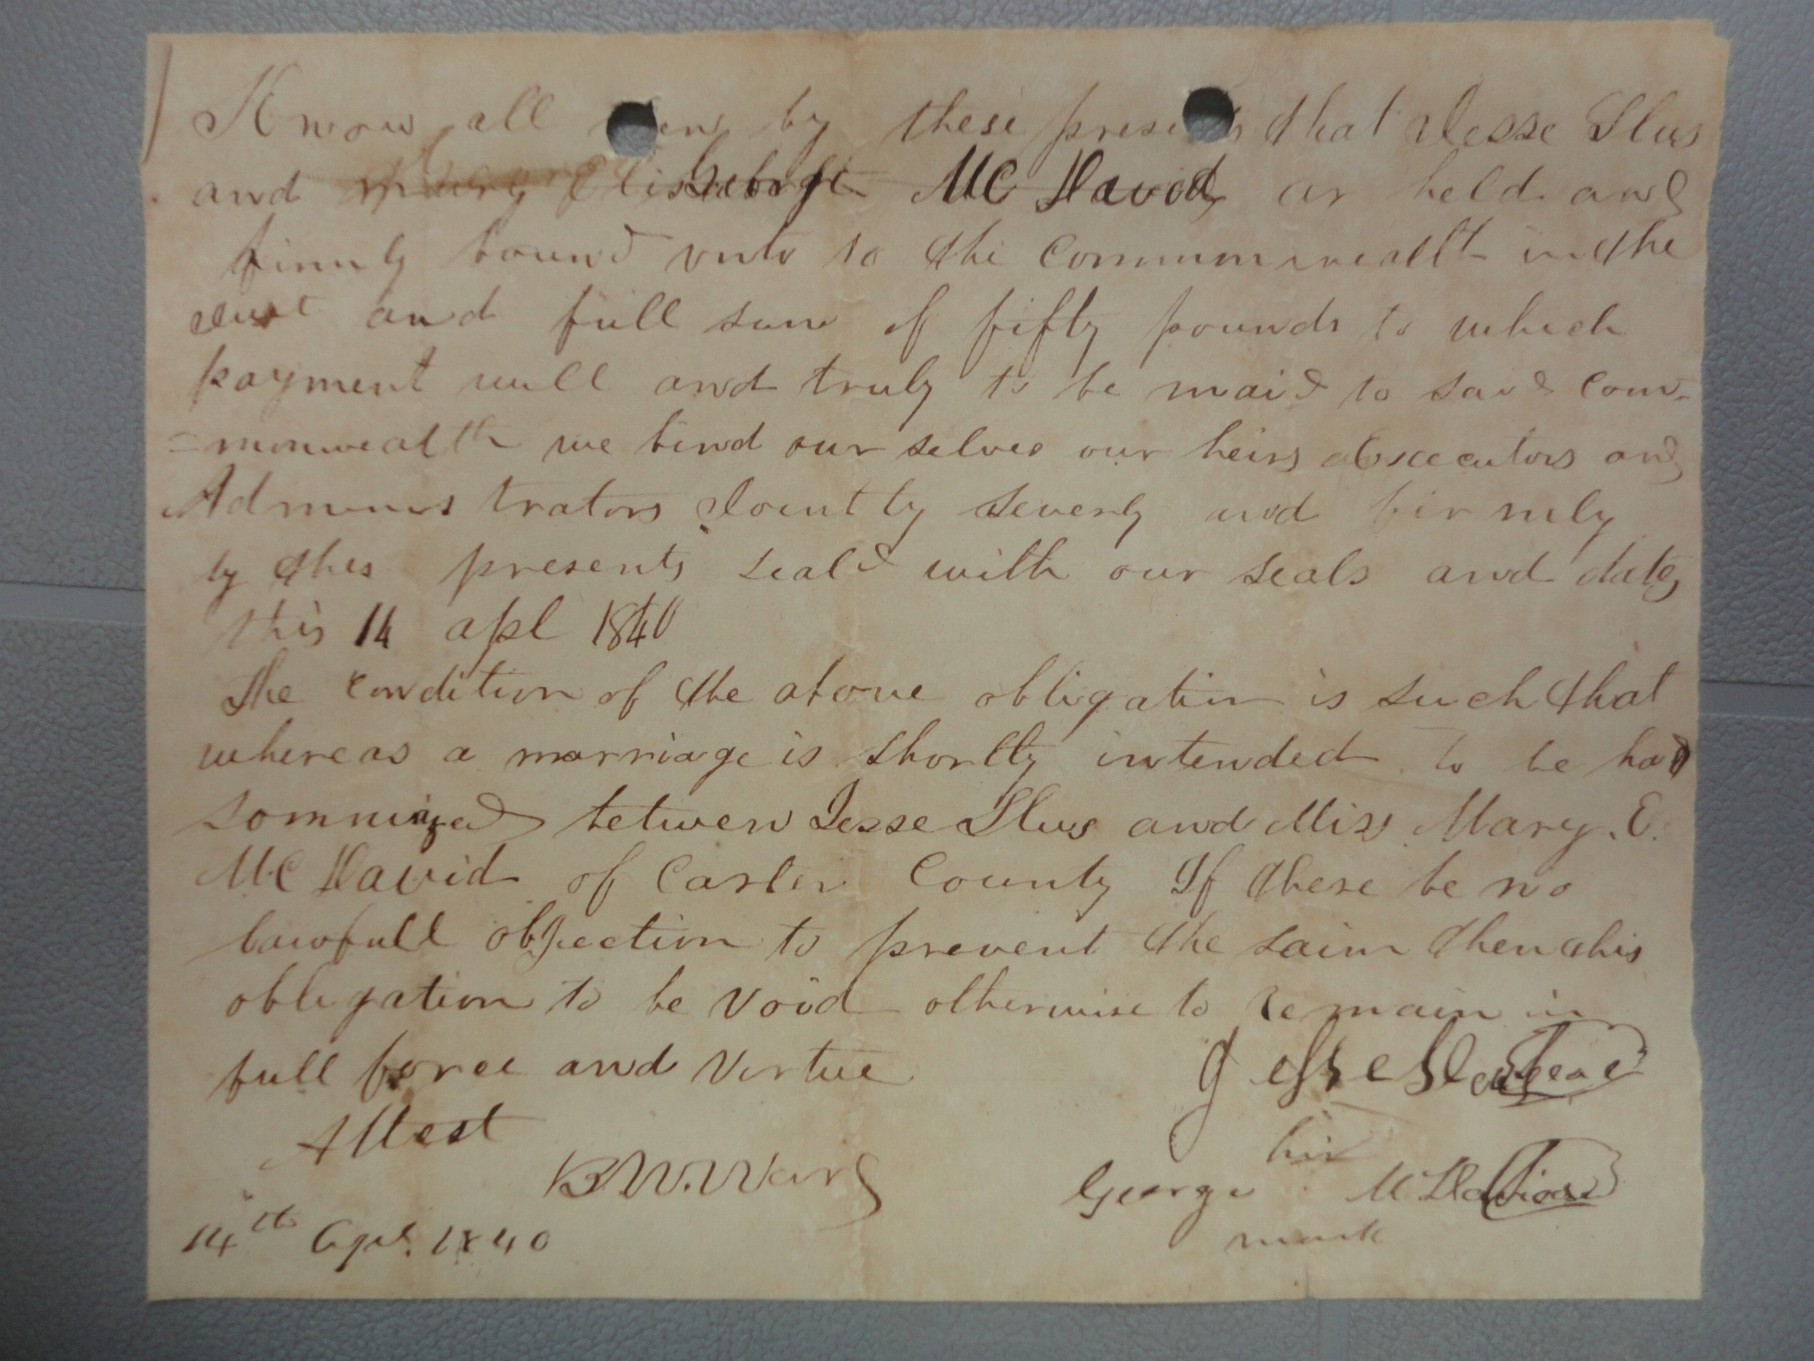 Know all men by these presents that Jesse Slus
and McDavid ar held and
firmly bound unto to the Commonwealth in the
Just and full sum of fifty pounds to which
payment will and truly to be maid to said Com-
=monwealth we bind our selves our heirs Excecutors and
Administrators Jountly severly and firmly
by thes presents seald with our seals and dates
this 14 apl 1840
The condition of the above obligation is such that
whereas a marriage is shortly intended to be had
between Jesse Slus and Miss Mary. E.
McDavid of Carter County If there be no
lawfull objection to prevent the saim then this
obligation to be void otherwise to remain in
full force and virtue
Jesse Seal
Attest
his
B W. Ward
George McDavid
mark
14th Apl. 1840